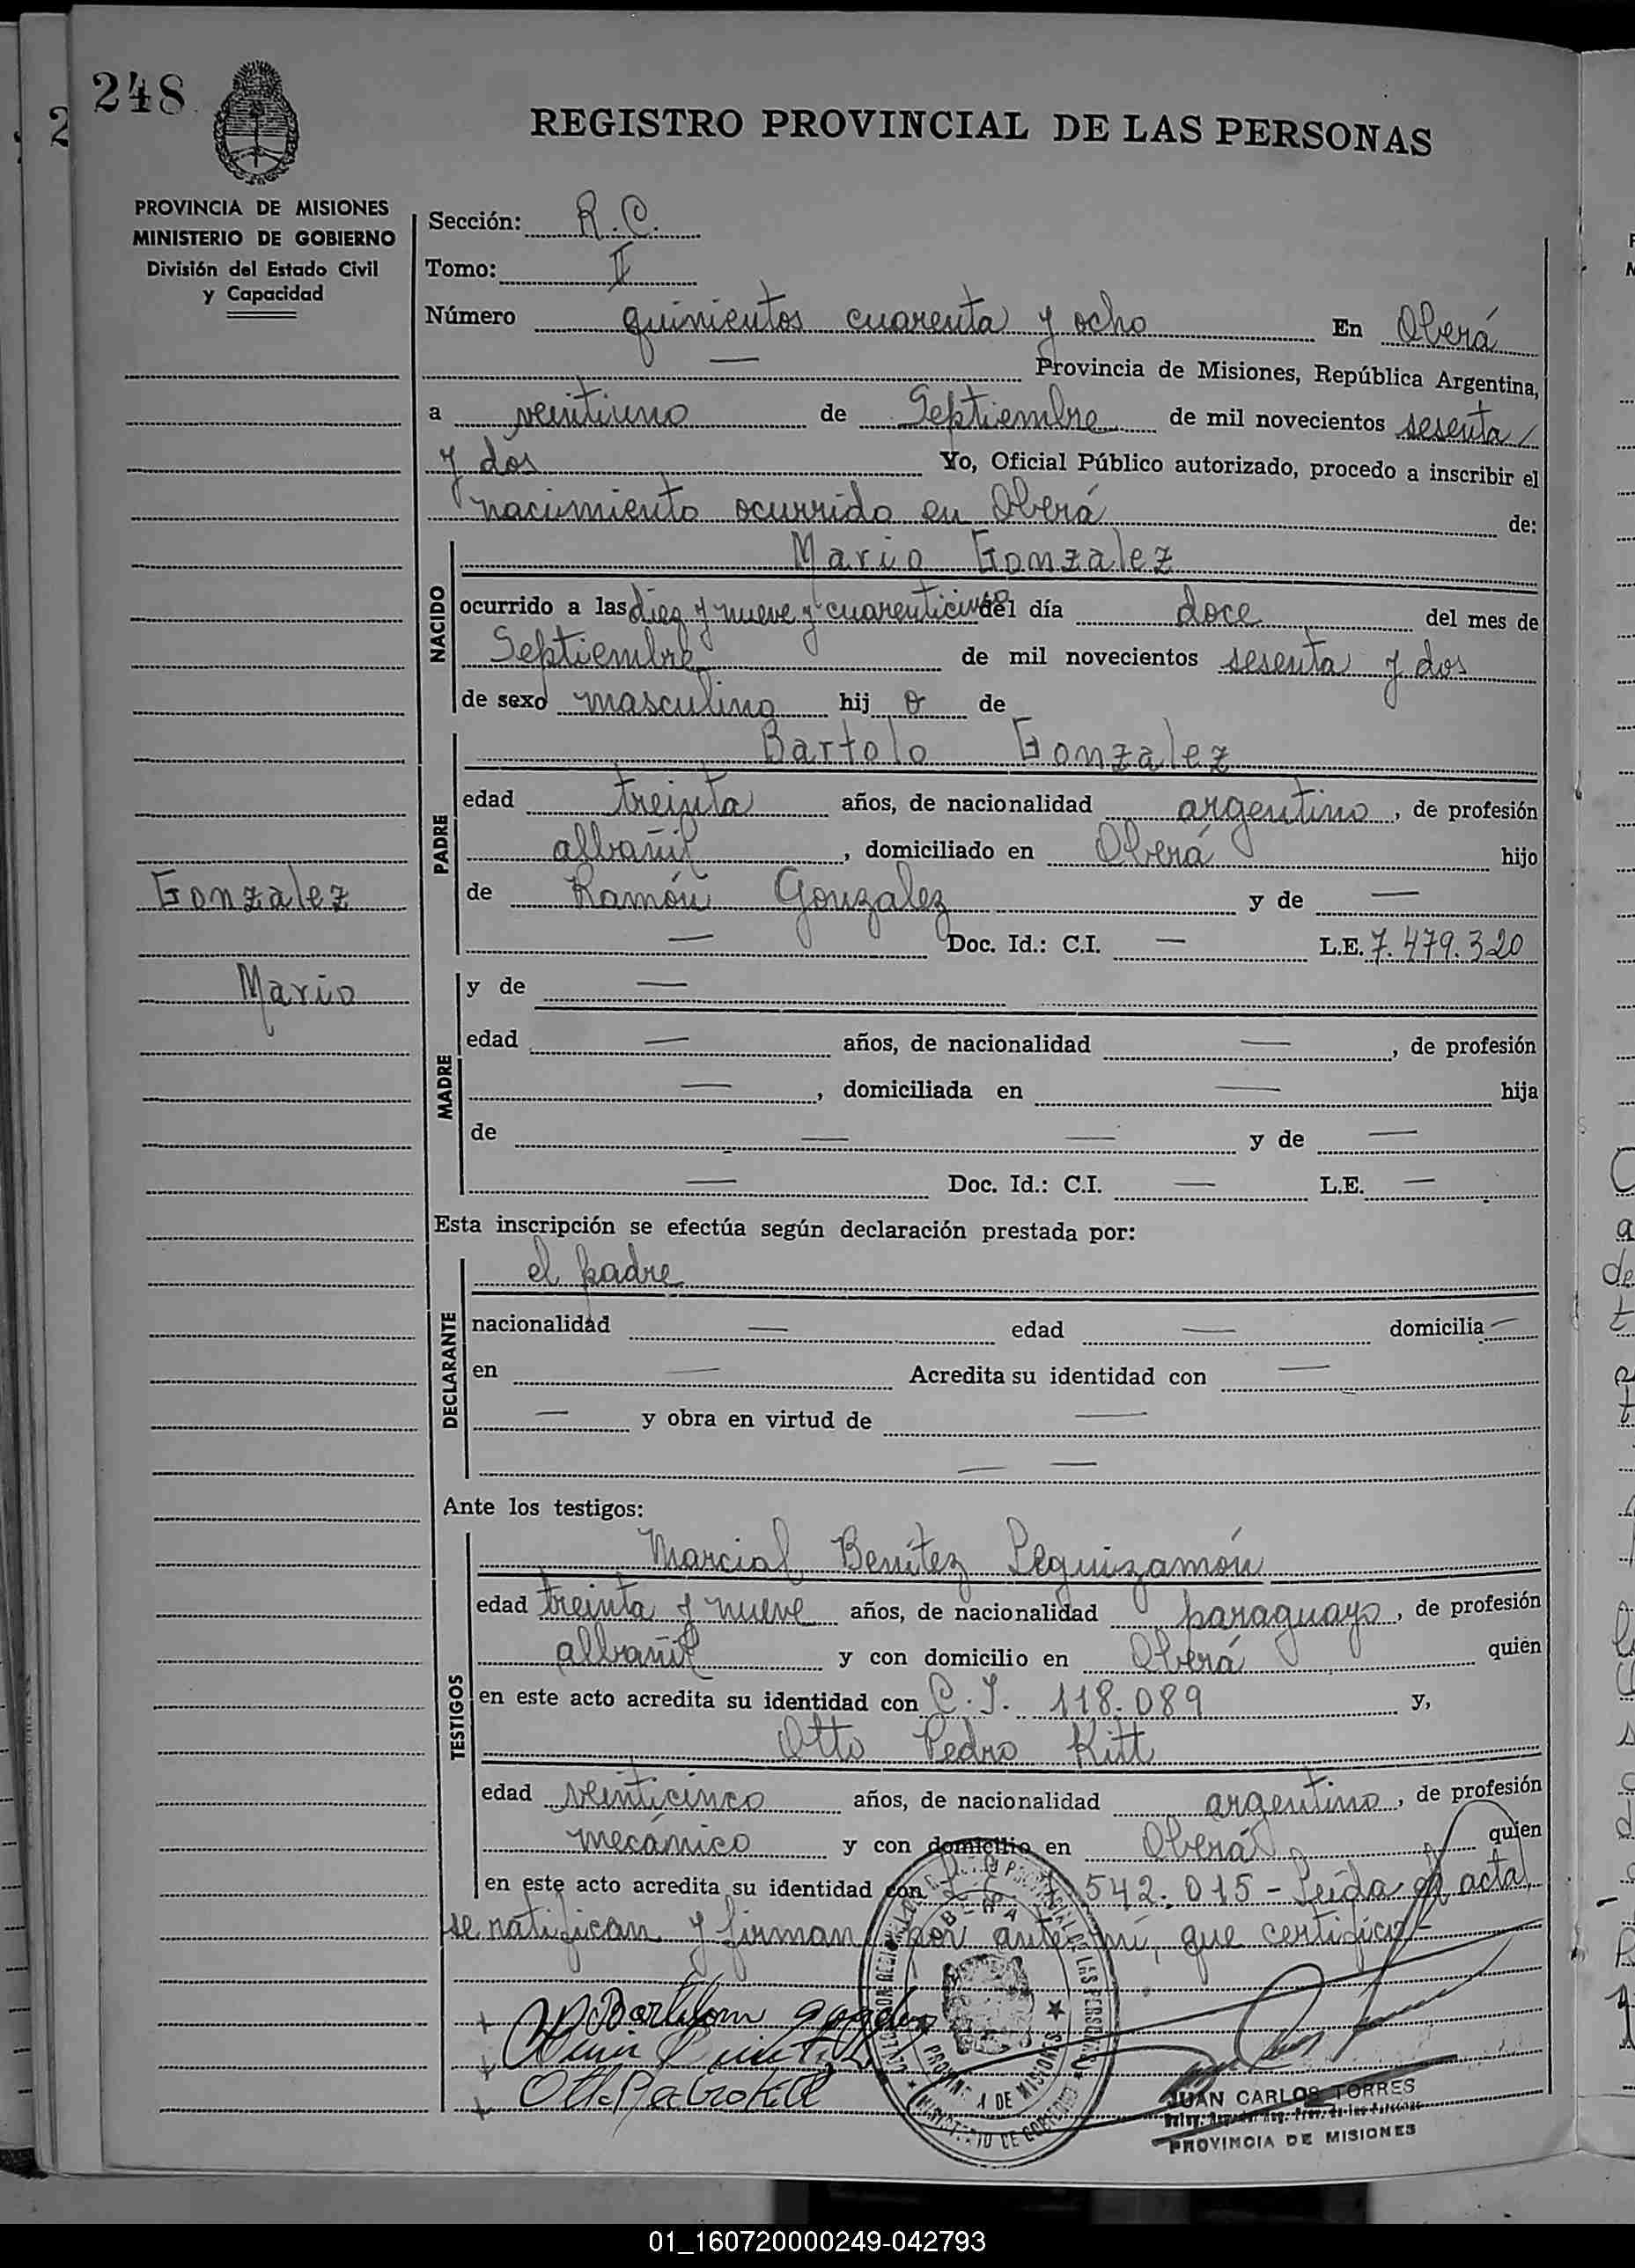 248
REGISTRO PROVINCIAL DE LAS PERSONAS
PROVINCIA DE MISIONES
MINISTERIO DE GOBIERNO
División del Estado Civil
y Capacidad
Sección: R.C.
Tomo: II
Número quinientos cuarenta y ocho En Oberá
— Provincia de Misiones, República Argentina,
a veintiuno de Septiembre de mil novecientos sesenta
y dos Yo, Oficial Público autorizado, procedo a inscribir el
nacimiento ocurrido en Oberá de:
NACIDO
Mario Gonzalez
ocurrido a las diez y nueve y cuarenticinco del día doce del mes de
Septiembre de mil novecientos sesenta y dos
de sexo masculino hij o de
PADRE
Bartolo Gonzalez
edad treinta años, de nacionalidad argentino, de profesión
albañil, domiciliado en Oberá hijo
Gonzalez
de Ramón Gonzalez y de —
— Doc. Id.: C.I. — L.E. 7.479.320
Mario
MADRE
y de —
edad — años, de nacionalidad —, de profesión
—, domiciliada en — hija
de — — y de —
— Doc. Id.: C.I. — L.E. —
Esta inscripción se efectúa según declaración prestada por:
DECLARANTE
el padre
nacionalidad — edad — domicilia —
en — Acredita su identidad con —
— y obra en virtud de —
— —
Ante los testigos:
TESTIGOS
Marcial Benítez Leguizamón
edad treinta y nueve años, de nacionalidad paraguayo, de profesión
albañil y con domicilio en Oberá quién
en este acto acredita su identidad con C.I. 118.089 y,
Otto Pedro Kitt
edad veinticinco años, de nacionalidad argentino, de profesión
mecánico y con domicilio en Oberá quien
en este acto acredita su identidad con 542.015 - Leída el acta
se ratifican y firman por ante mí, que certifico -
JUAN CARLOS TORRES
PROVINCIA DE MISIONES
01_160720000249-042793